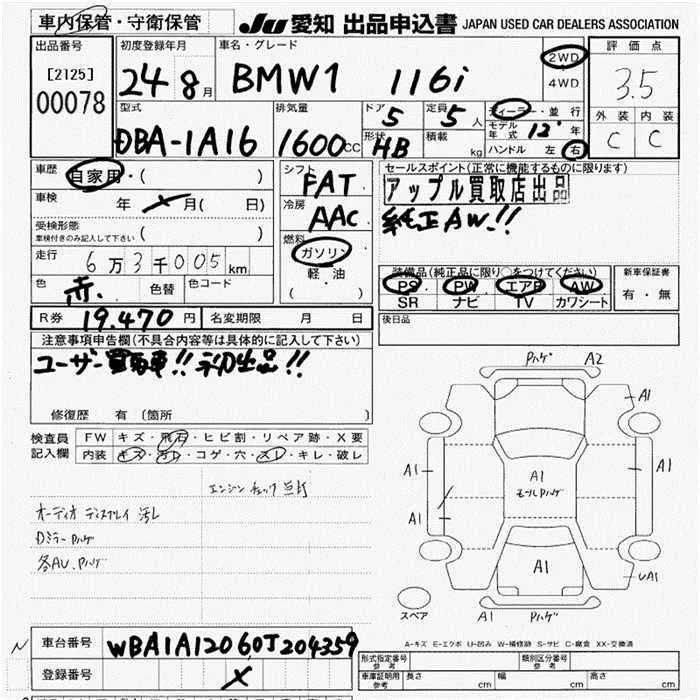 車内保管・守衛保管
JU 愛知 出品申込書 JAPAN USED CAR DEALERS ASSOCIATION
出品番号
[2125]
00078
初度登録年月
24 8月
車名・グレード
BMW1 116i
2WD
4WD
評価点
3.5
外装 内装
C C
型式
DBA-1A16
排気量
1600cc
ドア
5
定員
5人
形状
HB
積載
kg
ディーラー・並行
モデル年式 12年
ハンドル 左 右
車歴
自家用・( )
車検
年 月( 日)
受検形態
車検付きのみ記入して下さい ( )
走行
6万3千005km
色
赤.
色替
色コード
シフト
FAT
冷房
AAC
燃料
ガソリン
軽・油
( )
セールスポイント(正常に機能するものに限ります)
アップル買取店出品
純正AW.!!
装備品(純正品に限り○をつけてください)
PS PW エアB AW
SR ナビ TV カワシート
新車保証書
有・無
R券 19.470円
名変期限 月 日
後日品
注意事項申告欄(不具合内容等は具体的に記入して下さい)
ユーザー買取車!! 初出品!!
修復歴 有 (箇所 )
検査員記入欄
FW キズ・飛石・ヒビ割・リペア跡・X要
内装 キズ・汚レ・コゲ・穴・スレ・キレ・破レ
エンジンチェック点灯
オーディオディスプレイ汚レ
Dミラーハゲ
各AU.Pハゲ
Pハゲ A2
A1
A1 A1
A1
モールPハゲ
A1
A1
UA1
スペア
A1 Pハゲ
A-キズ E-エクボ U-凹み W-補修跡 S-サビ C-腐食 XX-交換済
N
車台番号 WBA1A12060J204359
登録番号
形式指定番号 参考
類別区分番号 参考
車庫証明用 参考 長さ cm 幅 cm 高さ cm